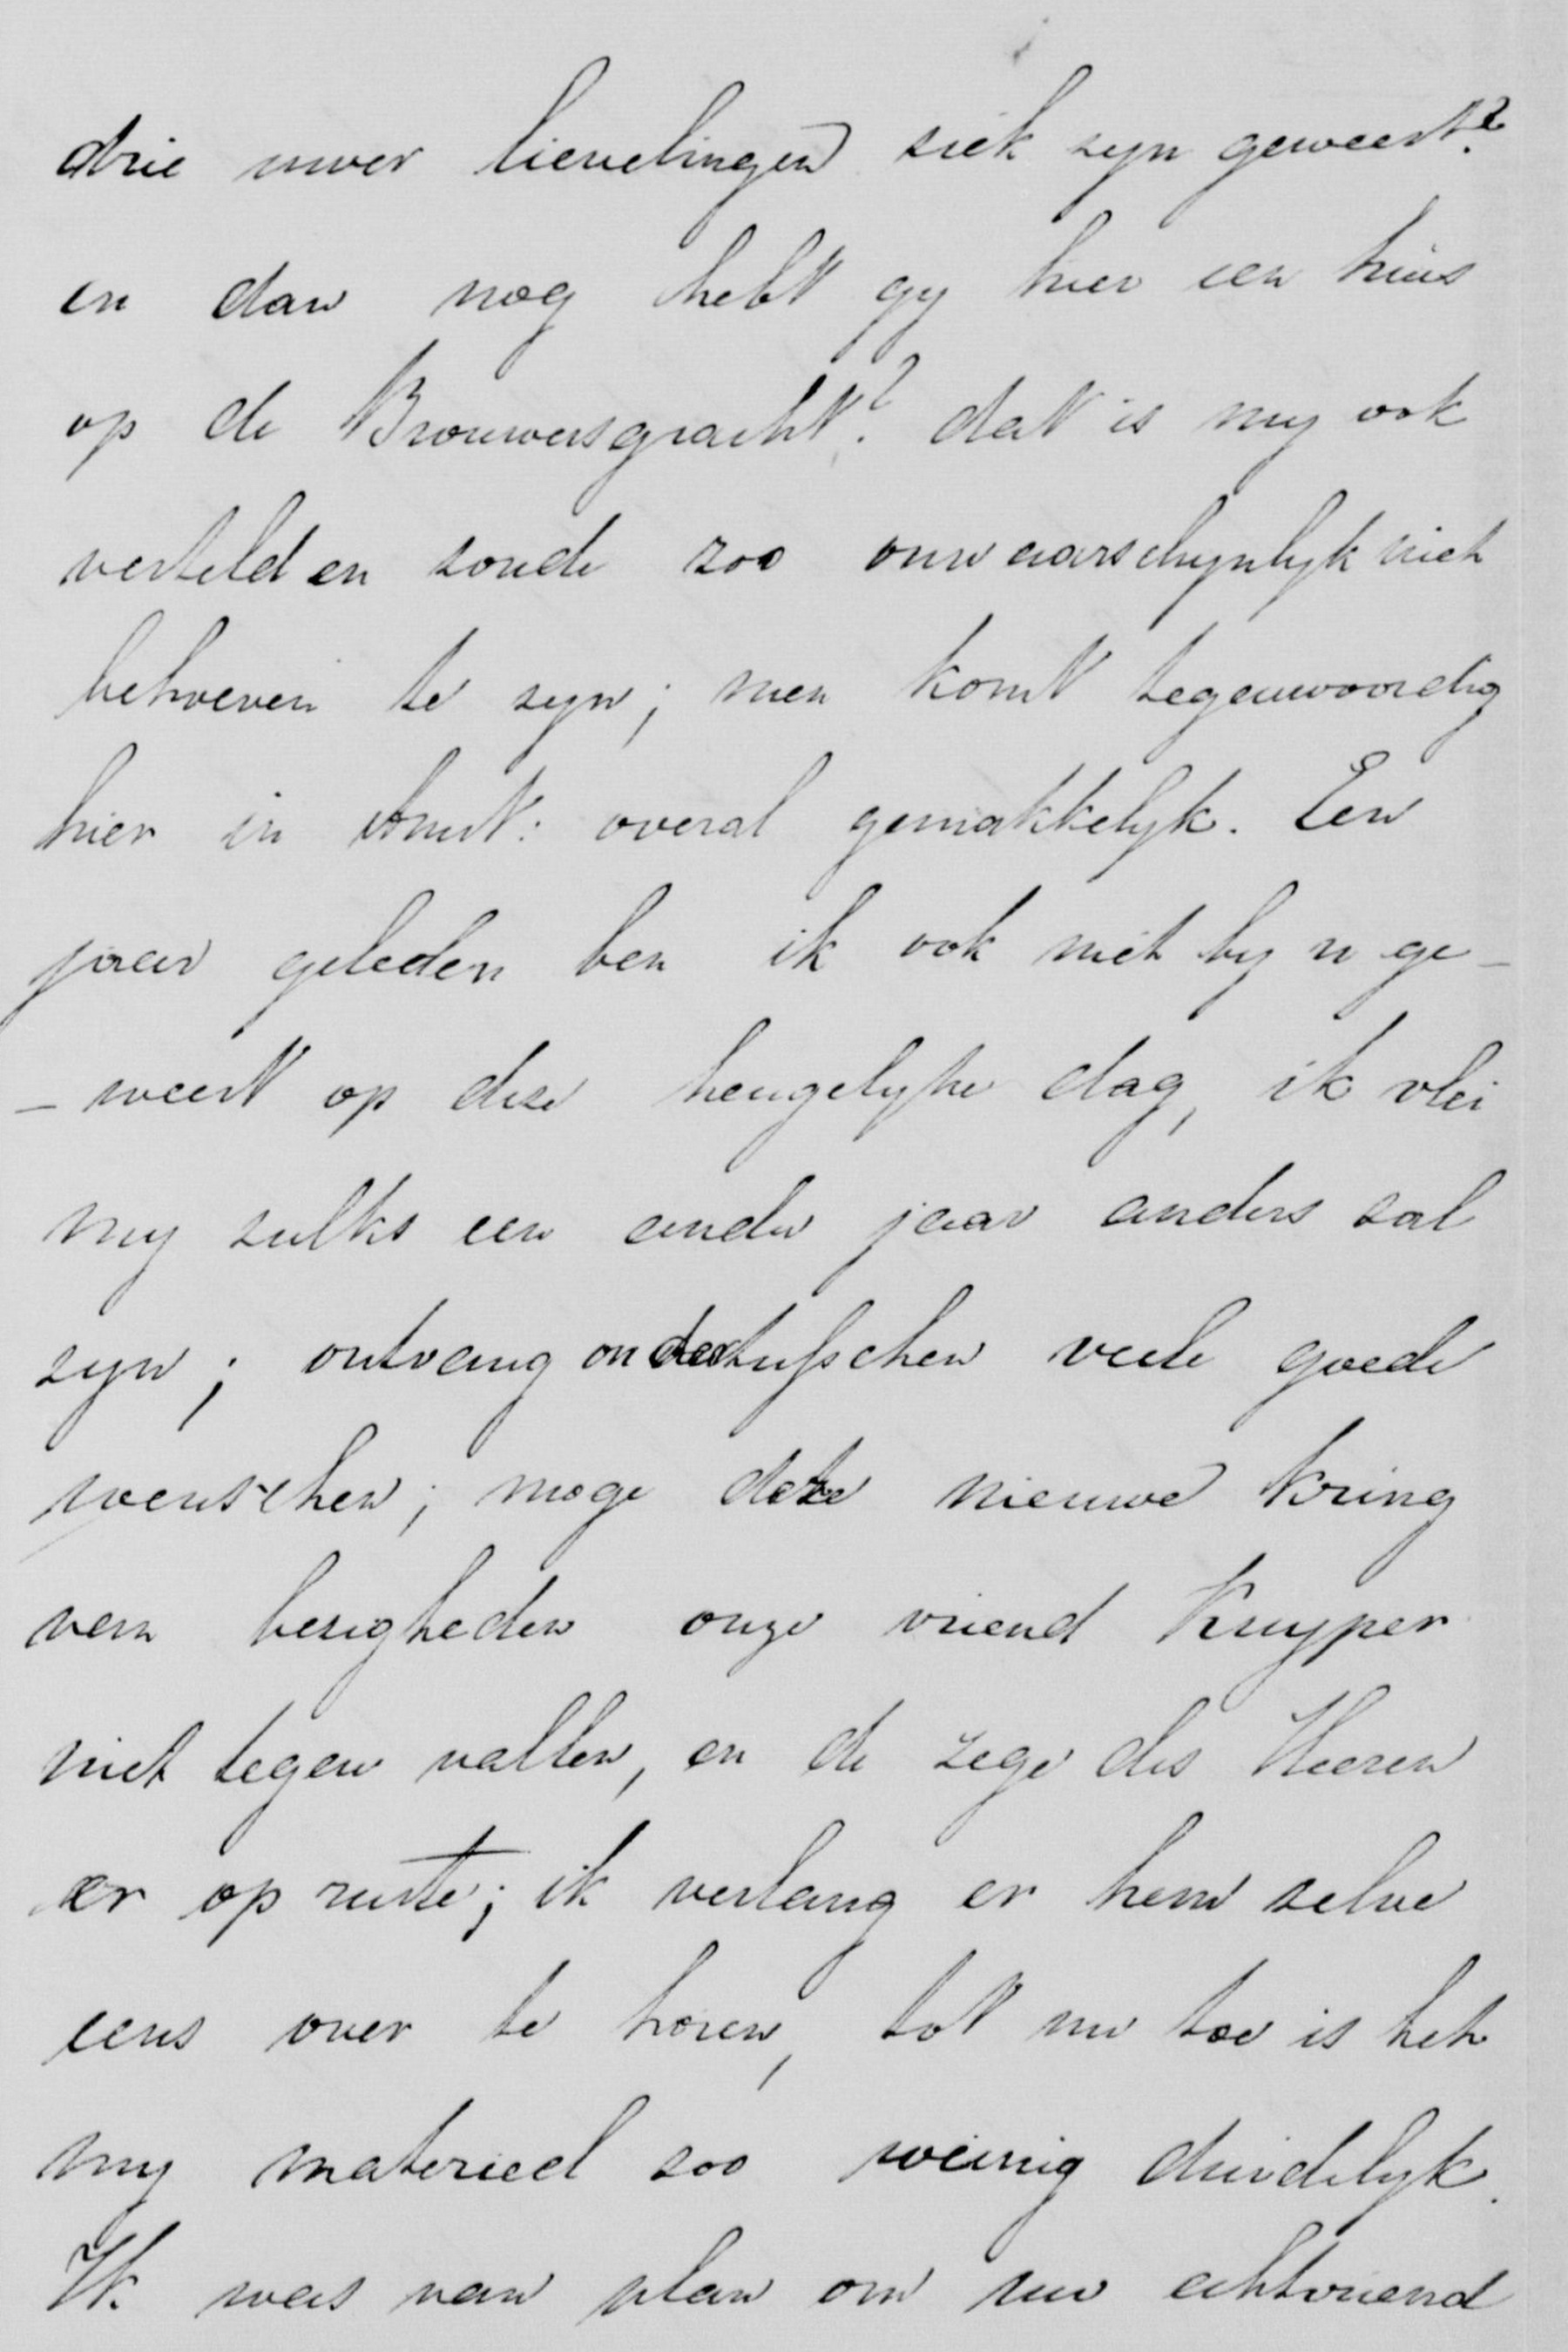 drie uwer lievelingen siek zyn geweest?
en dan nog hebt gy hier een huis
op de Brouwersgracht? dat is my ook
verteld en soude zoo onwaarschynlyk niet
behoeven te zyn; men komt tegenwoordig
hier in Amst: overal gemakkelyk. Een
jaar geleden ben ik ook niet by u ge-
- weest op deze heugelyke dag, ik vlei
my zulks een ander jaar anders sal
zyn; ontvang ondertusschen veele goede
wenschen; moge deze nieuwe kring
van bezigheden onze vriend Kuyper
niet tegen vallen, en de zege des Heeren
er op ruste; ik verlang er hem selve
eens over te horen, tot nu toe is het
my materieel soo weinig duidelyk.
Ik was van plan om uw echtvriend